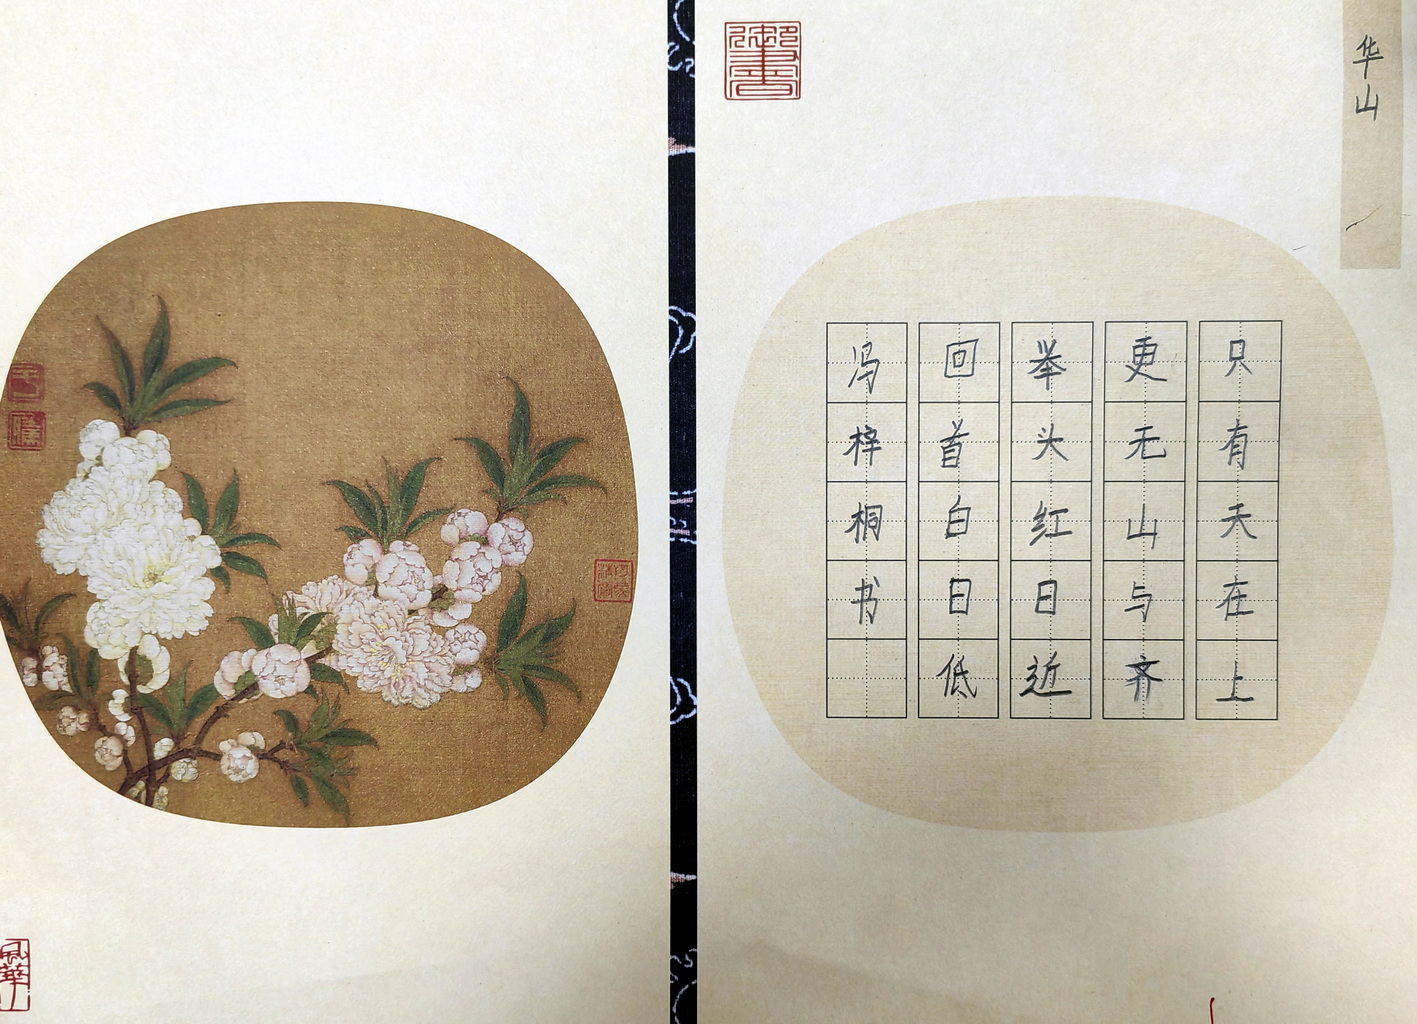 华山
只有天在上
更无山与齐
举头红日近
回首白日低
冯梓桐书